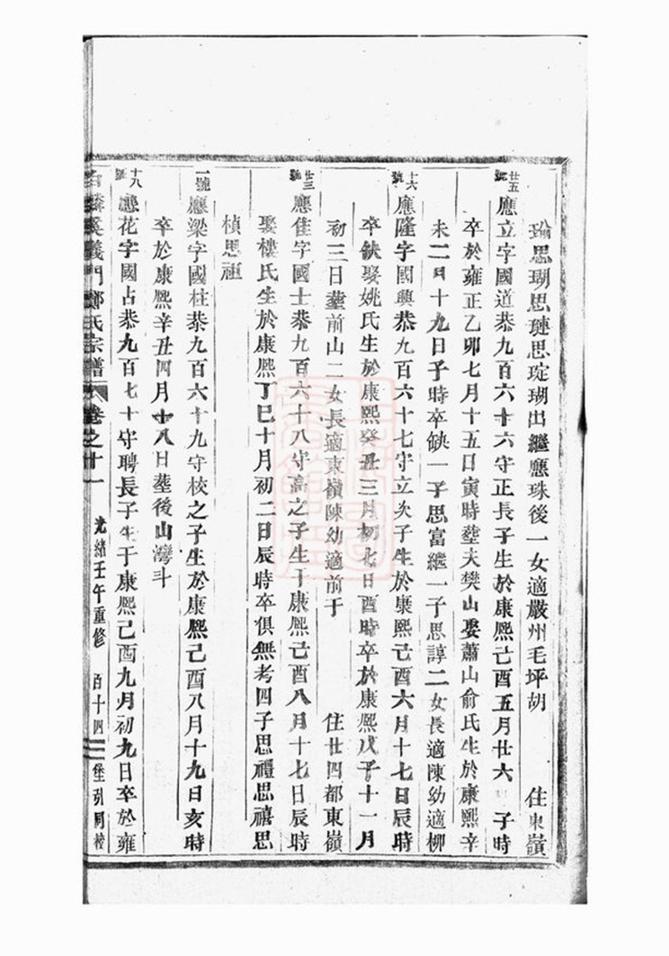 瑜思瑚思璉思琔瑚出繼應珠後一女適嚴州毛坪胡 住東嶺
廿五號 應立字國道恭九百六十六守正長子生於康熙己酉五月廿六 子時
卒於雍正乙卯七月十五日寅時塟夫樊山娶蕭山俞氏生於康熙辛
未二月十九日子時卒缺一子思富繼一子思諄二女長適陳幼適柳
十六號 應隆字國興恭九百六十七守立次子生於康熙己酉六月十七日辰時
卒缺娶姚氏生於康熙癸丑三月初七日酉時卒於康熙戊子十一月
初三日塟前山二女長適東嶺陳幼適前于 住廿四都東嶺
廿三號 應隹字國士恭九百六十八守高之子生于康熙己酉八月十七日辰時
娶樓氏生於康熙丁巳十月初二日辰時卒俱無考四子思禮思禧思
楨思禋
一號 應梁字國柱恭九百六十九守校之子生於康熙己酉八月十九日亥時
卒於康熙辛丑四月十八日塟後山灣斗
十八號 應花字國占恭九百七十守聘長子生于康熙己酉九月初九日卒於雍
麟溪義門鄭氏宗譜 卷之十一 光緒壬午重修 百十四 堂羽同校